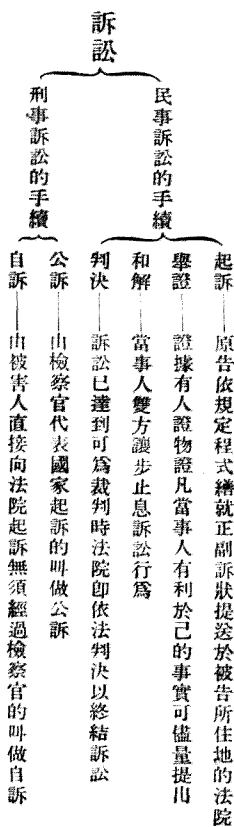 訴訟
民事訴訟的手續
起訴——原告依規定程式繕就正副訴狀提送於被告所住地的法院
舉證——證據有人證物證凡當事人有利於己的事實可儘量提出
和解——當事人雙方讓步止息訴訟行爲
判決——訴訟已達到可爲裁判時法院卽依法判決以終結訴訟
刑事訴訟的手續
公訴——由檢察官代表國家起訴的叫做公訴
自訴——由被害人直接向法院起訴無須經過檢察官的叫做自訴